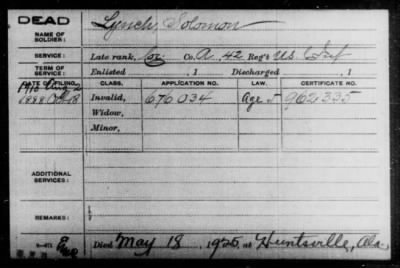 DEAD
NAME OF SOLDIER:
Lynch, Solomon
SERVICE:
Late rank, Co. A, 42 Reg't U.S. C Inf
TERM OF SERVICE:
Enlisted , 1 Discharged , 1
DATE OF FILING. CLASS. APPLICATION NO. LAW. CERTIFICATE NO.
1913 Aug 2
1888 Oct 18 Invalid, 676034 Age 962335
Widow,
Minor,
ADDITIONAL SERVICES:
REMARKS:
Died May 18, 1925, at Huntsville, Ala.